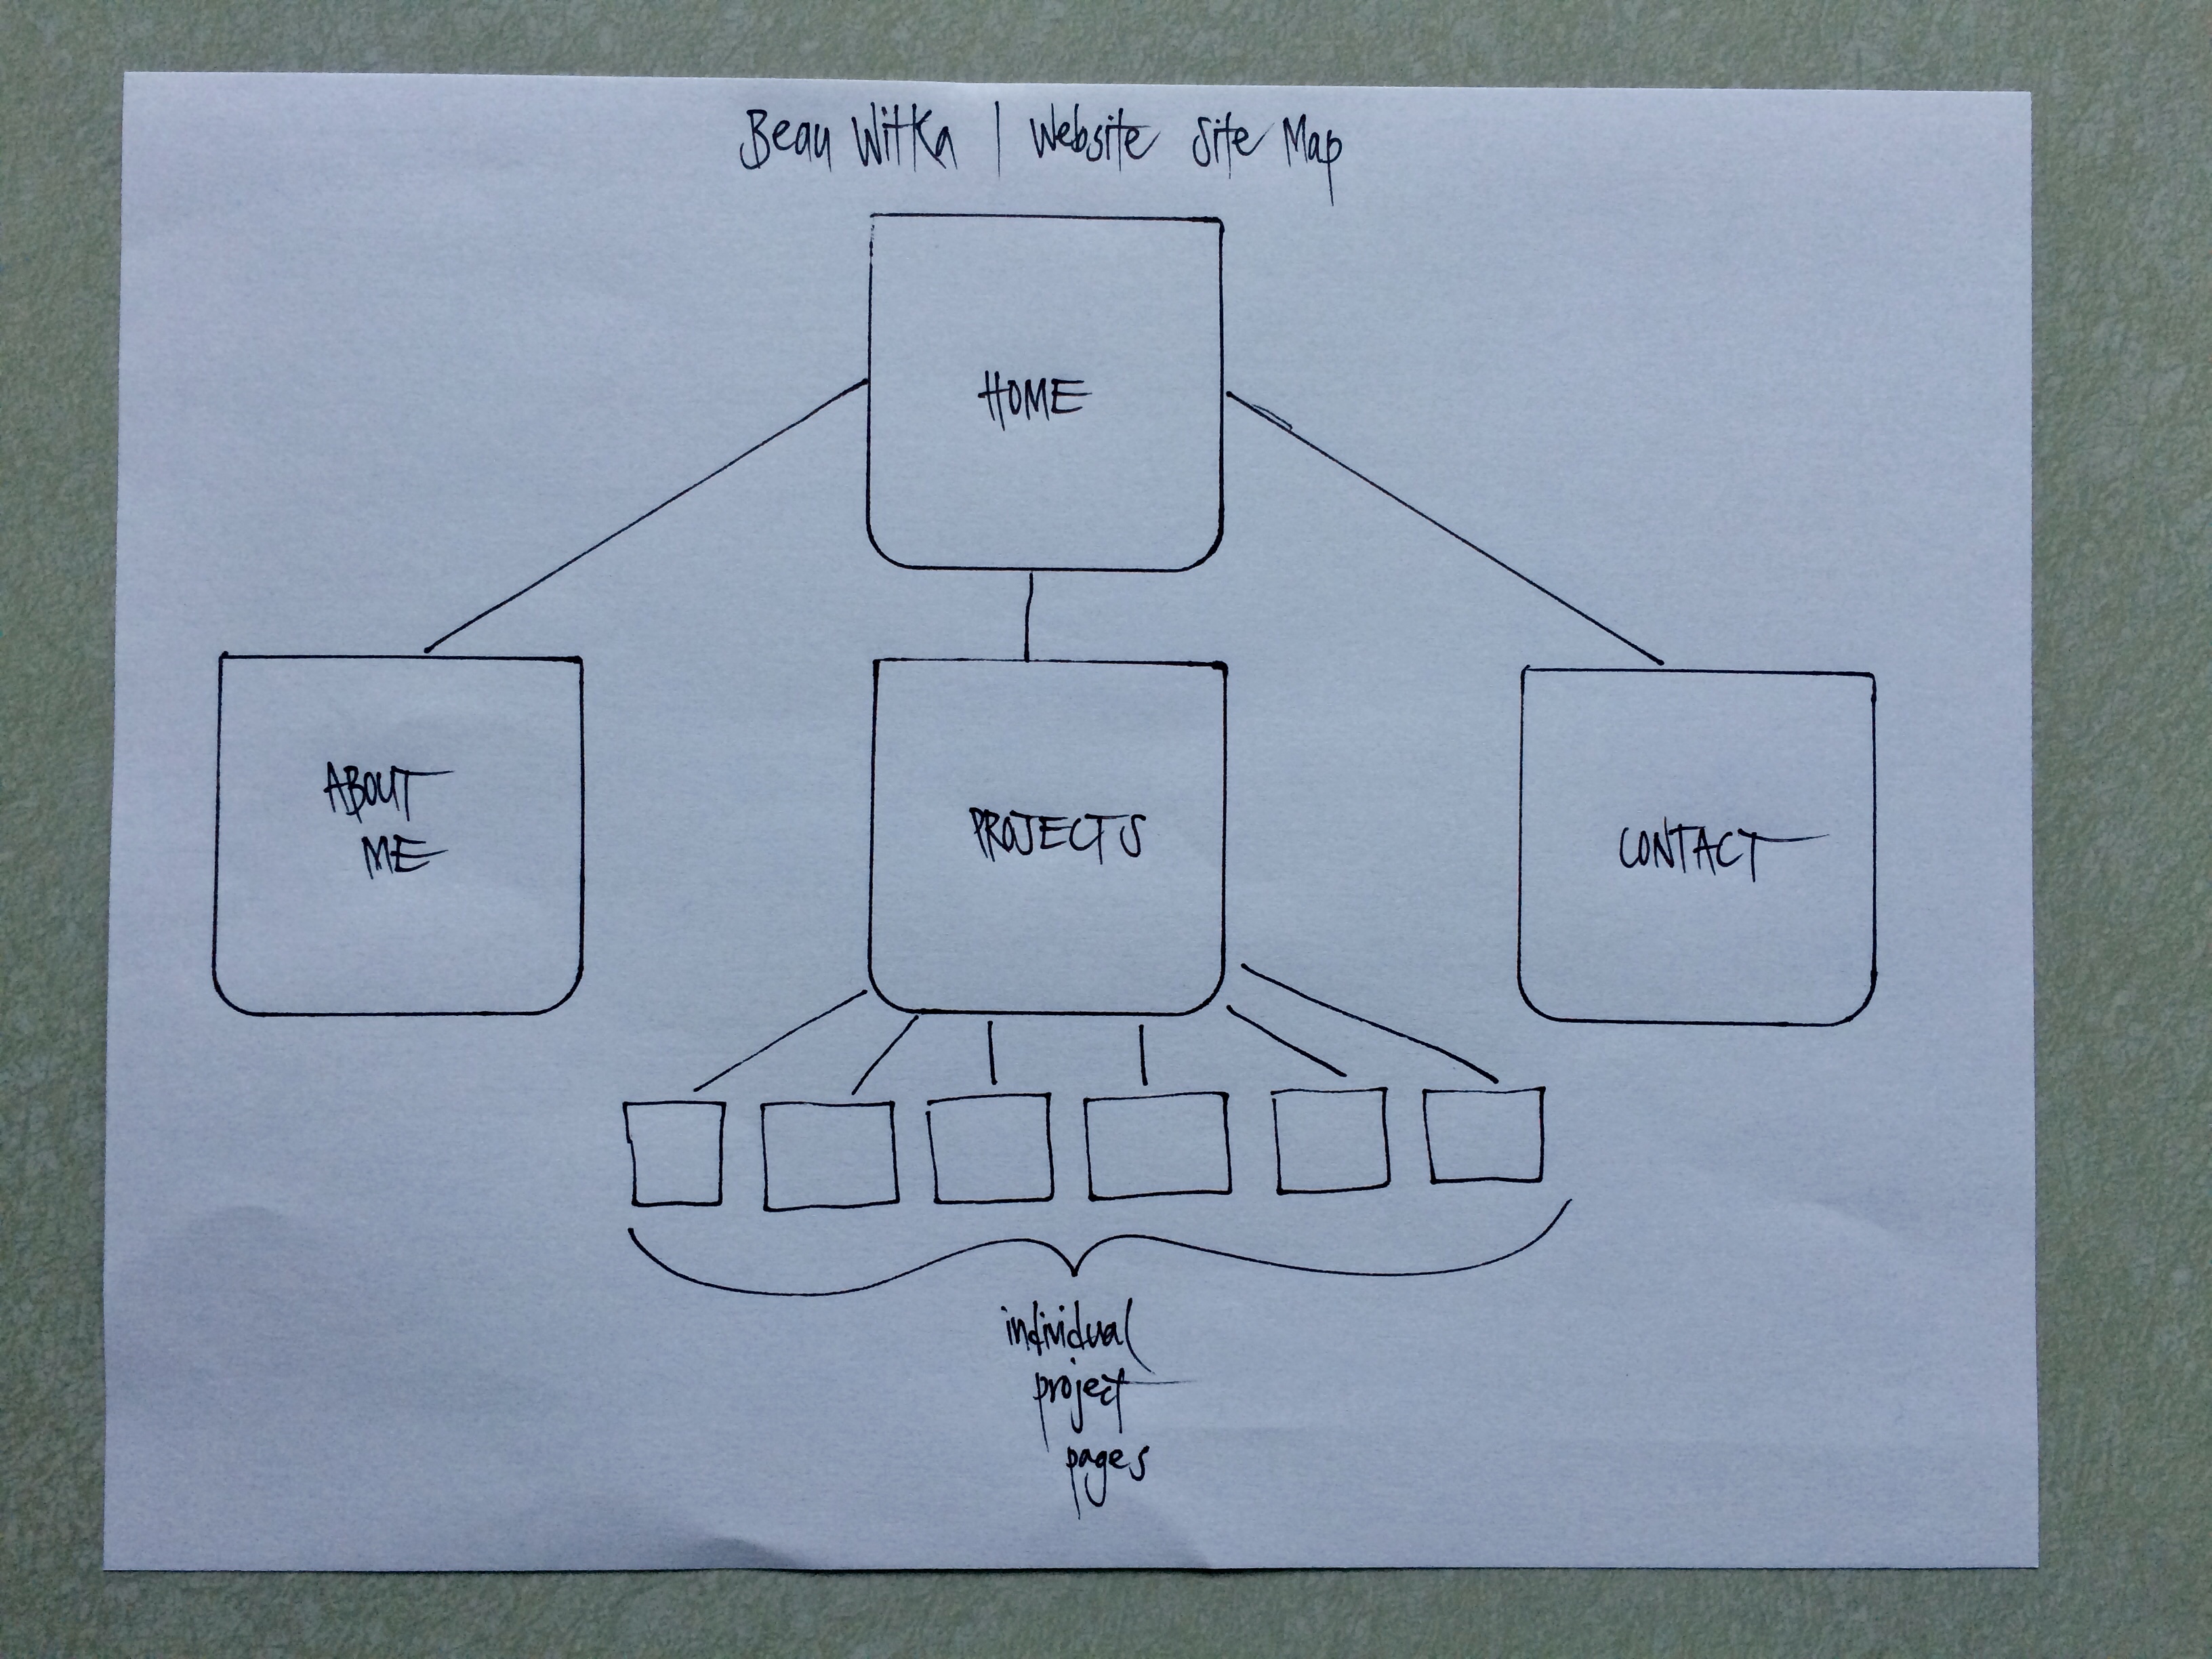 Beau Witka | Website Site Map
HOME
ABOUT
ME
PROJECTS
CONTACT
individual
project
pages